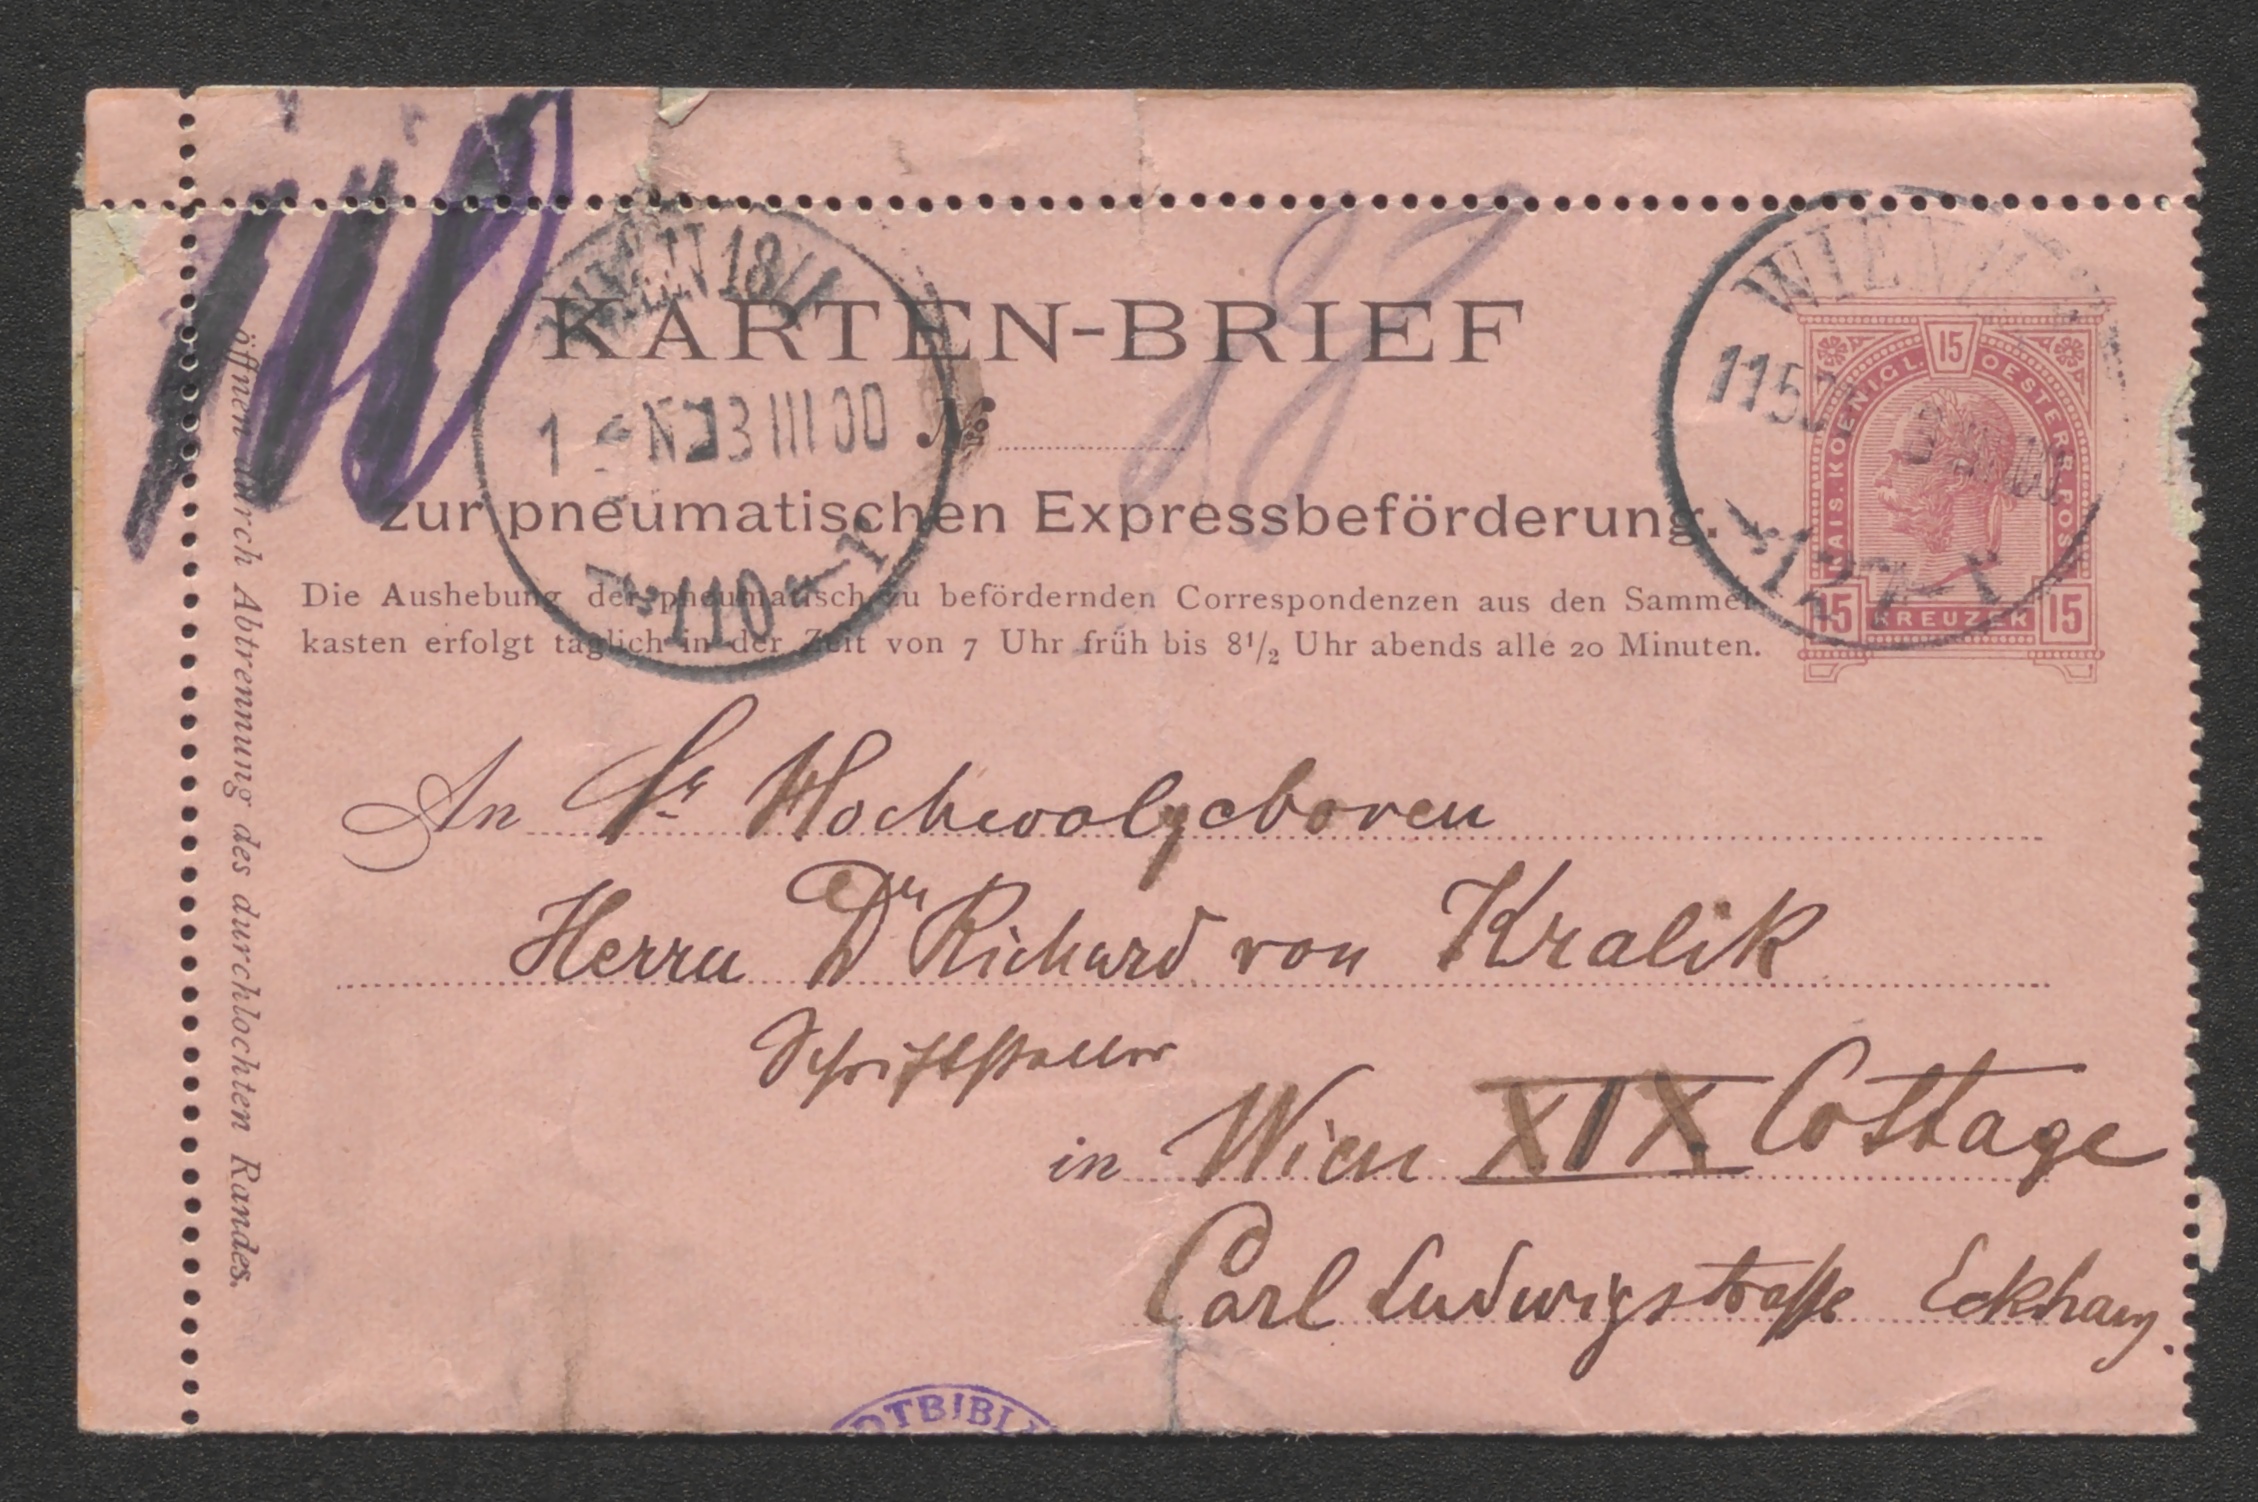 KARTEN-BRIEF
zur pneumatischen Expressbeförderung.
Die Aushebung der pneumatisch zu befördernden Correspondenzen aus den Sammel
kasten erfolgt täglich in der Zeit von 7 Uhr früh bis 8 1/2 Uhr abends alle 20 Minuten.
An Sr Hochwolgeboren
Herrn Dr Richard von Kralik
Schriftsteller
in Wien XIX Cottage
Carl Ludwigstrasse Eckhaus.
öffnen durch Abtrennung des durchlochten Randes.
WIEN 18/1
13 III 00
110
WIEN
115
127
KAIS. KOENIGL. 15 OESTERR. POST
15 KREUZER 15
88
DTBIBLI